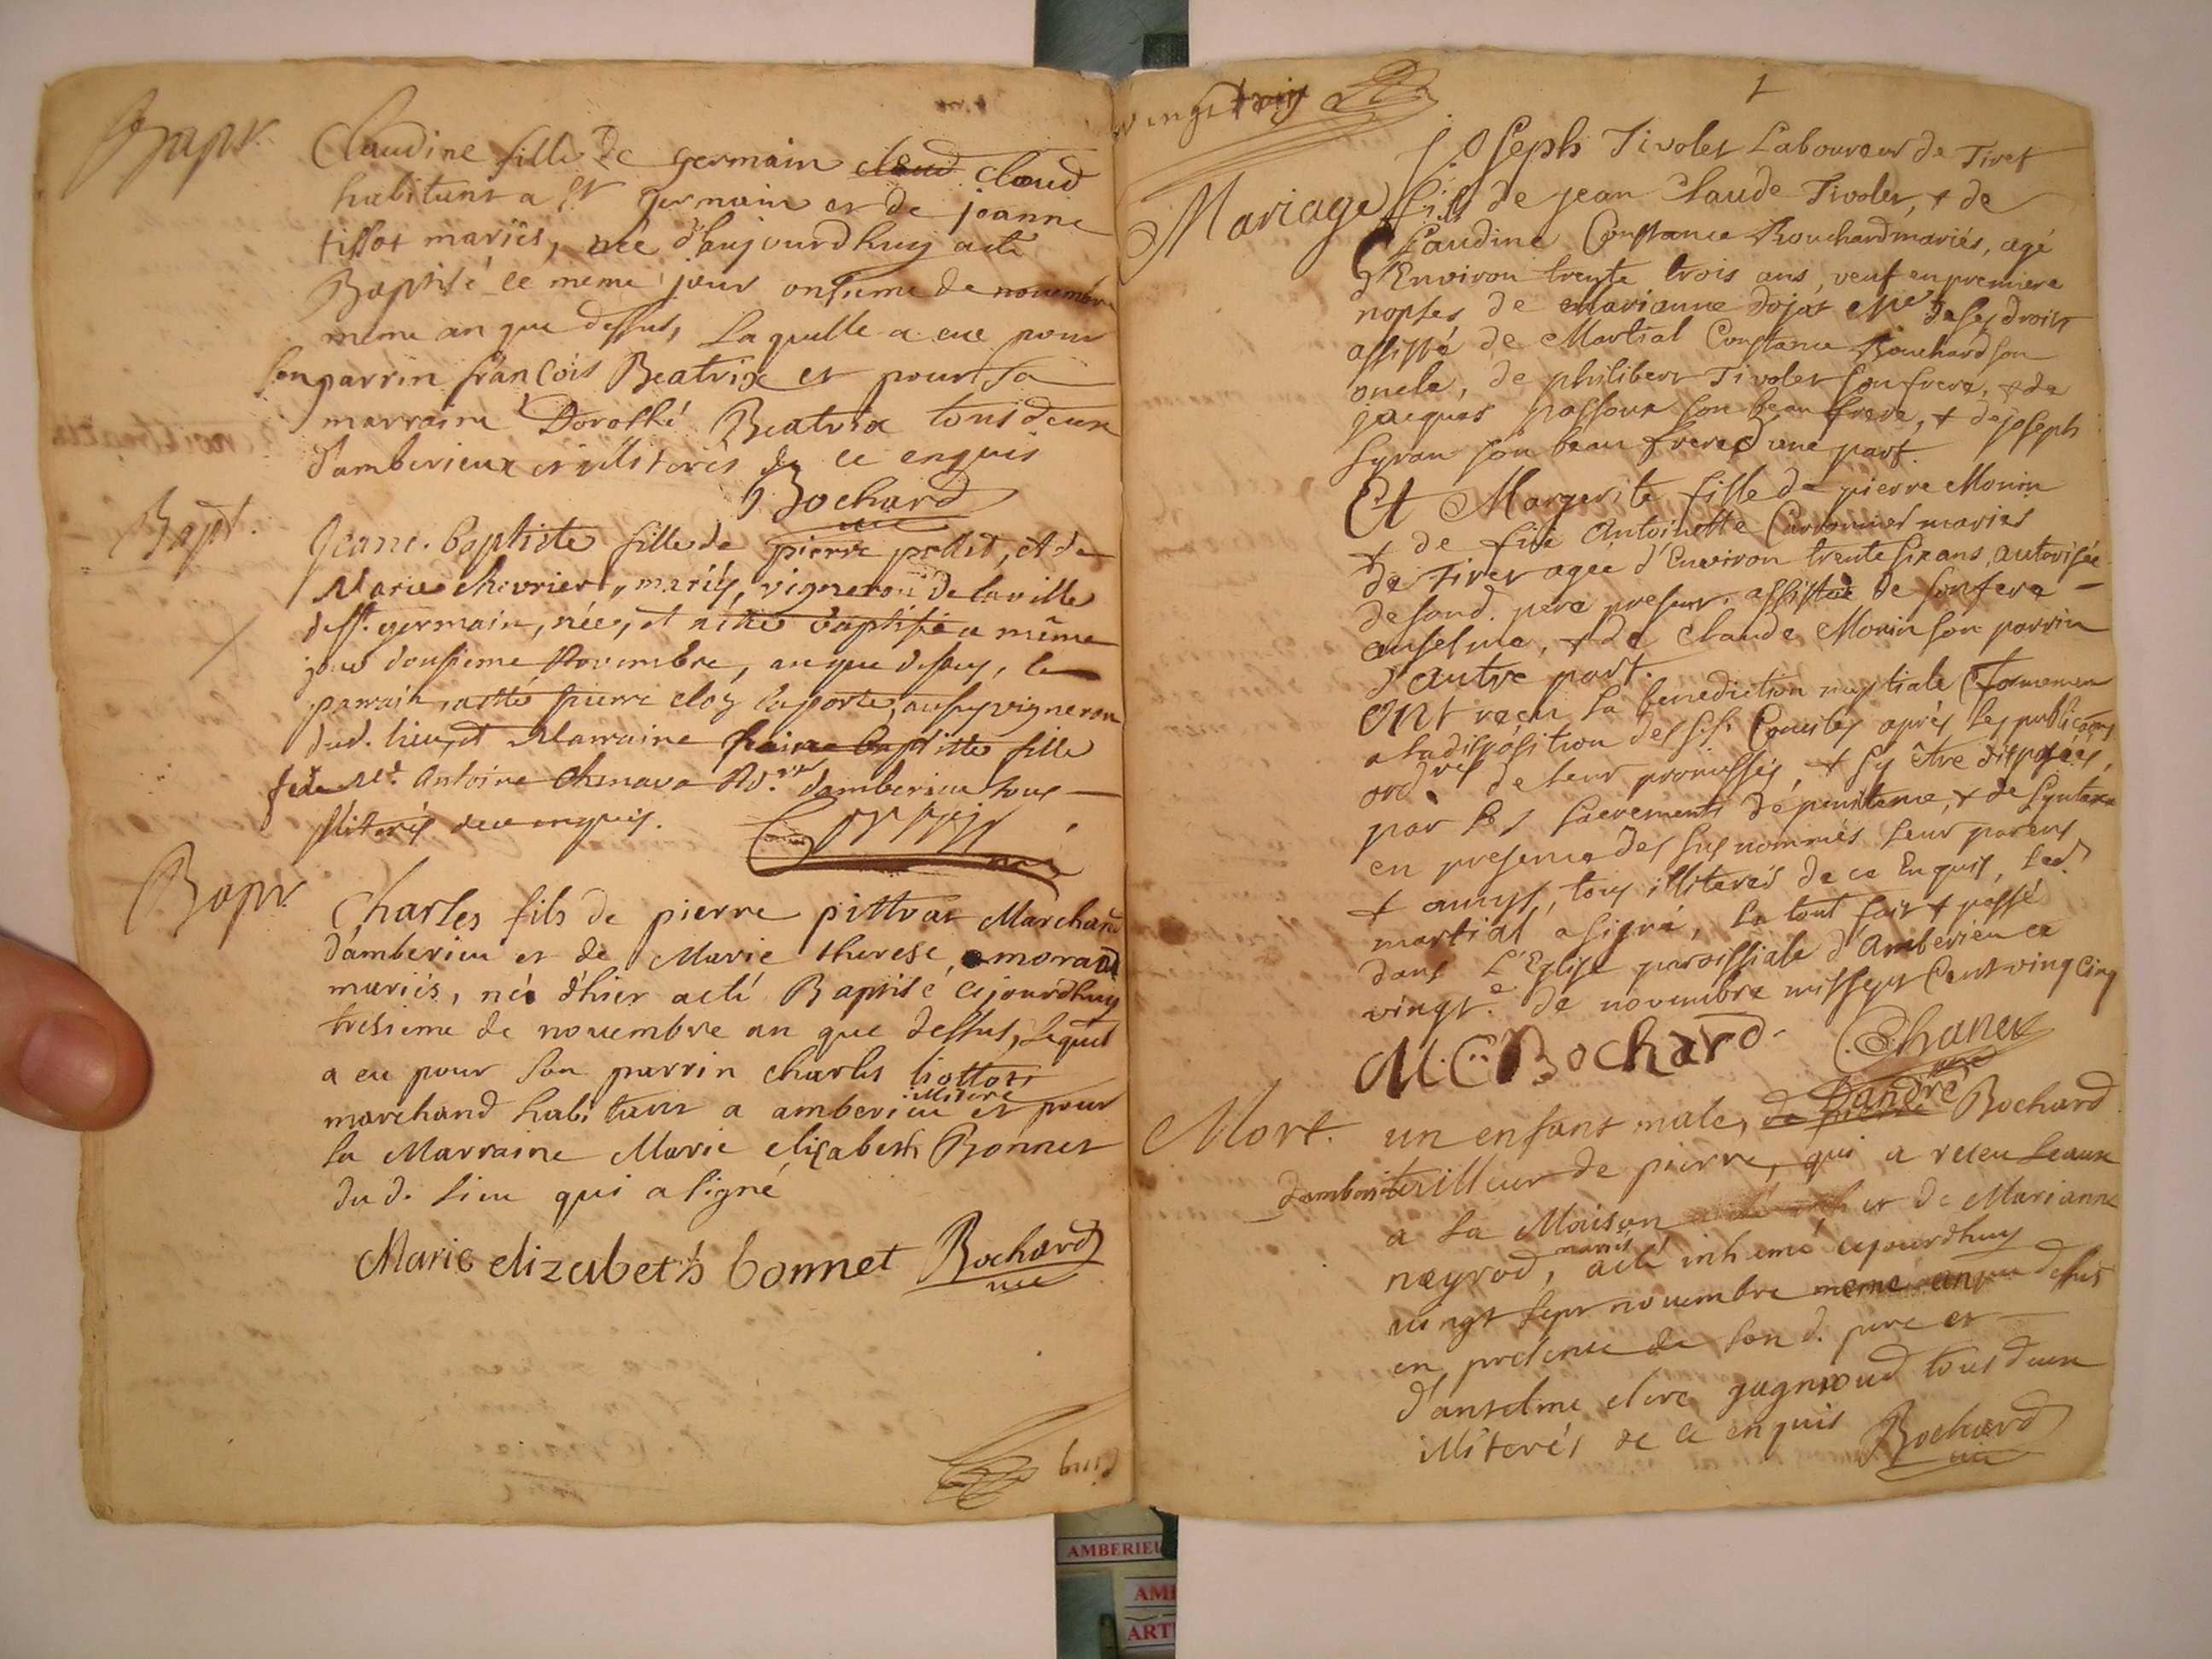 Bapt.
Claudine fille de germain claud claud
habitant a St germain et de jeanne
tissot mariés, née d'aujourdhuy a été
Baptisé le meme jour onsieme de novembre
meme an que dessus, laquelle a eue pour
son parrin françois Beatrix et pour sa
marraine Dorothé Beatrix tous deux
d'amberieux et illiterés de ce enquis
Bochard
vic
Bapt.
Jeane-baptiste fille de pierre pollet, et de
Marie chevrier, mariés, vigneron de la ville
de st. germain, née, et a été baptisée a même
jour dousieme Novembre, an que dessus, le
parrain a été pierre cloz laporte, aussy vigneron
dud. lieu, et Marraine baptiste fille
feu Antoine Chenava d'amberieu tous
illiterés de ce enquis.
Bapt.
Charles fils de pierre pittrat Marchand
d'amberieu et de Marie therese morand
mariés, né d'hier a été Baptisé cejourdhuy
tresieme de novembre an que dessus, lequel
a eu pour son parrin charles liottot
illiteré
marchand habitant a amberieu et pour
la Marraine Marie elizabeth Bonnet
du d. lieu qui a signé
Marie elizabeth bonnet Bochard
vic
cinq
vingt
1
Mariage
Joseph Tivolet Laboureur de Tiret
fils de jean Claude Tivolet, & de
Claudine Constance Bouchard mariés, agé
d'Environ trente trois ans, veuf en premiere
nopses de marianne dojat de ses droits
assisté de Martial Constance Bouchard son
oncle, de philibert Tivolet son frere, & de
jacques passour son beau frere, & de joseph
syran son beau frere d'une part.
Et Margerite fille de pierre Monin
& de feüe Antoinette Carronnier mariés
de Tiret agée d'Environ trente six ans, autorisée
de sond. pere present, assistée de son frere
anselme, & de Claude Monin son parrin
d'autre part.
Ont reçu la benediction nuptiale Conformemen
a la disposition des sts. Conciles après les publicaons
ordres de leur promesses, & sy être disposés,
par les sacrements de penitence, & de Syntaxe
en presence des sus nommés leur parens
& amys, tous illiterés de ce Enquis, led.
martial a signé, le tout fait & passé
dans L'Eglise paroissiale d'Amberieu ce
vingt.e de novembre mil sept Cent vingt Cinq
M. C. Bochard. Chanel
vic
Mort.
d'andré
un enfant male, de pierre Bochard
d'amberieu tailleur de pierre, qui a receu leaux
a la Maison et de Marianne
mariés
neyrod, a été inhumé cejourdhuy
vingt sept novembre meme an que dessus
en presence de son d. pere et
d'anselme clerc gagnoud tous deux
illiterés de ce enquis Bochard
vic
AMBERIEU
AM
ART